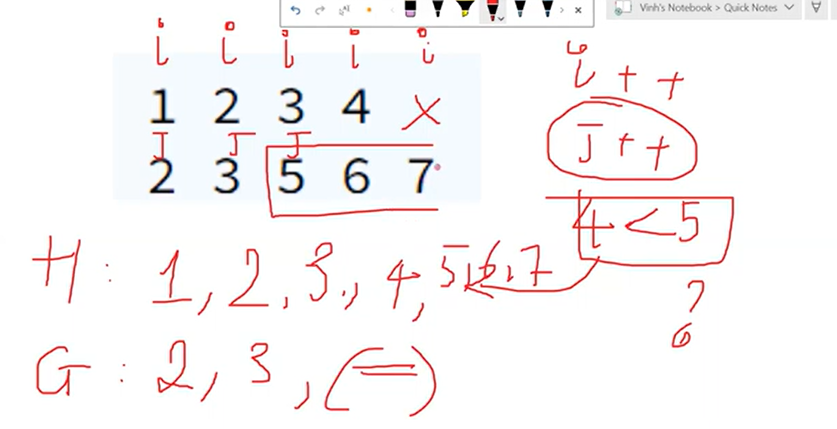 Vinh's Notebook > Quick Notes
i i i i i
1 2 3 4 X
J J J
2 3 5 6 7
i++
J++
4 < 5
H: 1, 2, 3, 4, 5, 6, 7
G: 2, 3, (=)
?